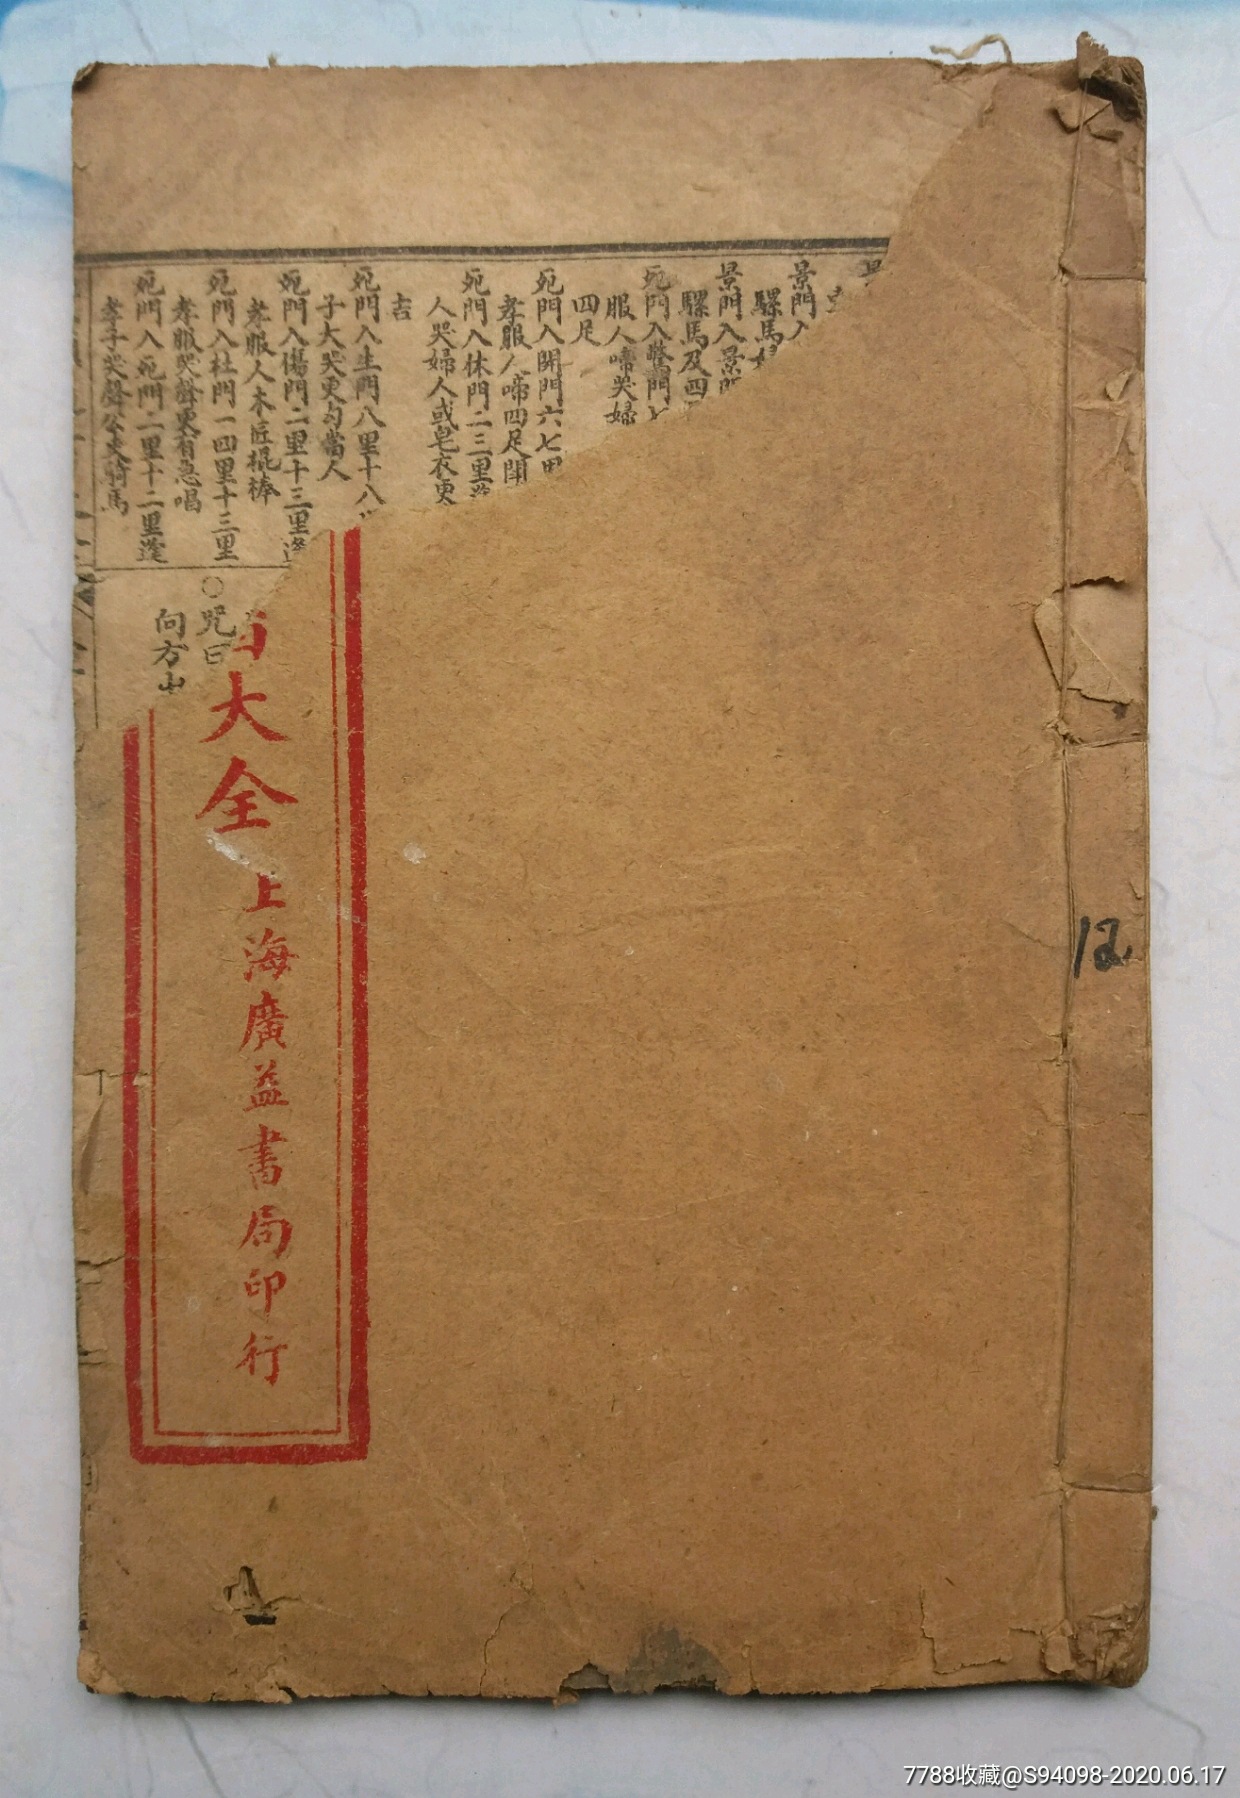 景門
驛馬
景門入景門
驛馬及四
死門入驚門七
服人啼哭婦
四足
死門入開門六七里
孝服人啼四足開
死門入休門二三里
人哭婦人或皂衣更
吉
死門入生門八里十八
子大哭更勾當人
死門入傷門二里十三里逢
孝服人木匠棍棒
死門入杜門一四里十三里
孝服哭聲更有急唱
死門入死門二里十二里逢
孝子哭聲公吏騎馬
○咒曰
向方
大全
上海廣益書局印行
12
7788收藏@S94098-2020.06.17